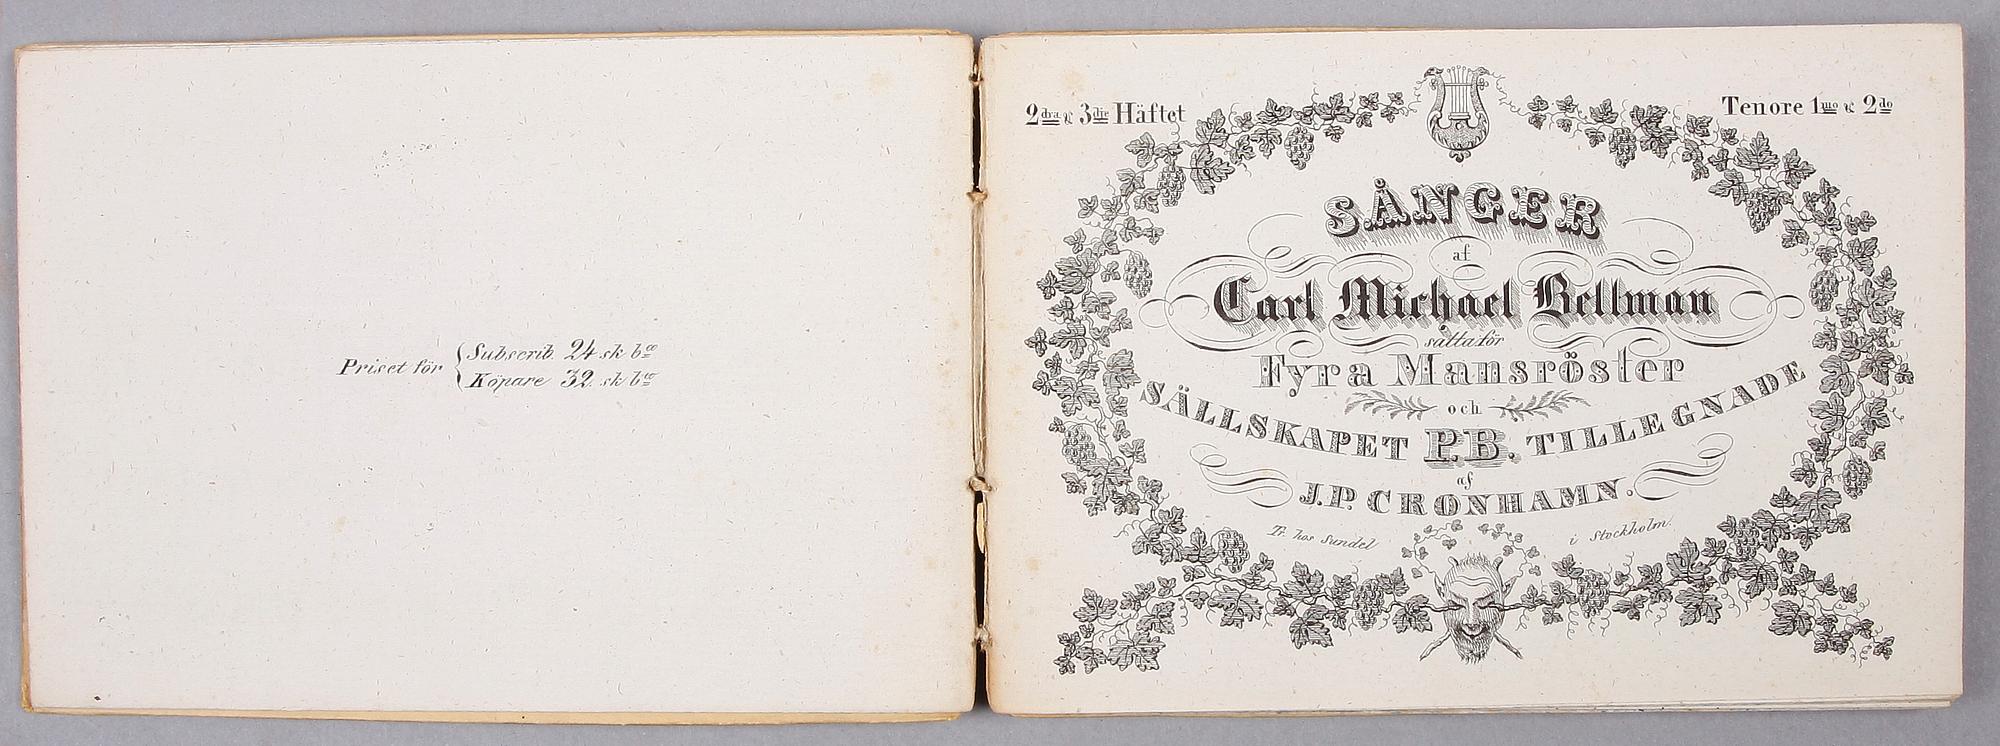 Priset för { Subscrib. 24 sk bco
Köpare 32 sk bco
2dra & 3die Häftet
Tenore 1mo & 2do
SÅNGER
af
Carl Michael Bellman
satta för
Fyra Mansröster
och
SÄLLSKAPET P.B. TILLEGNADE
af
J.P. CRONHAMN.
Tr. hos Sundel i Stockholm.